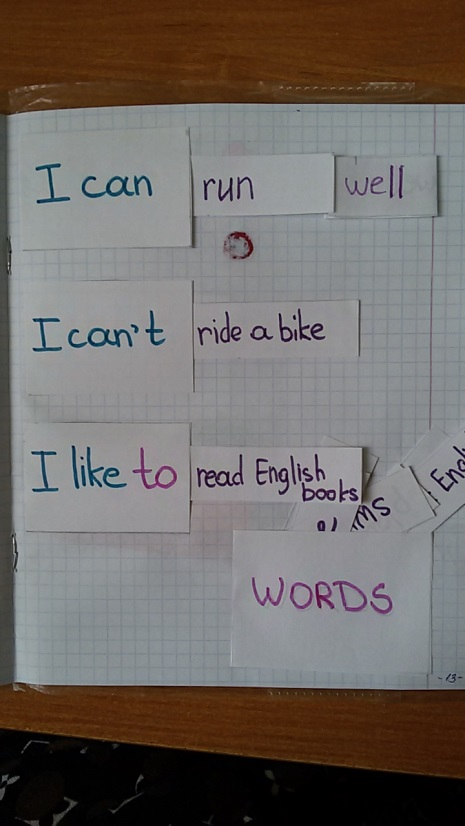 I can run well
I can't ride a bike
I like to read English
books
WORDS
-13-